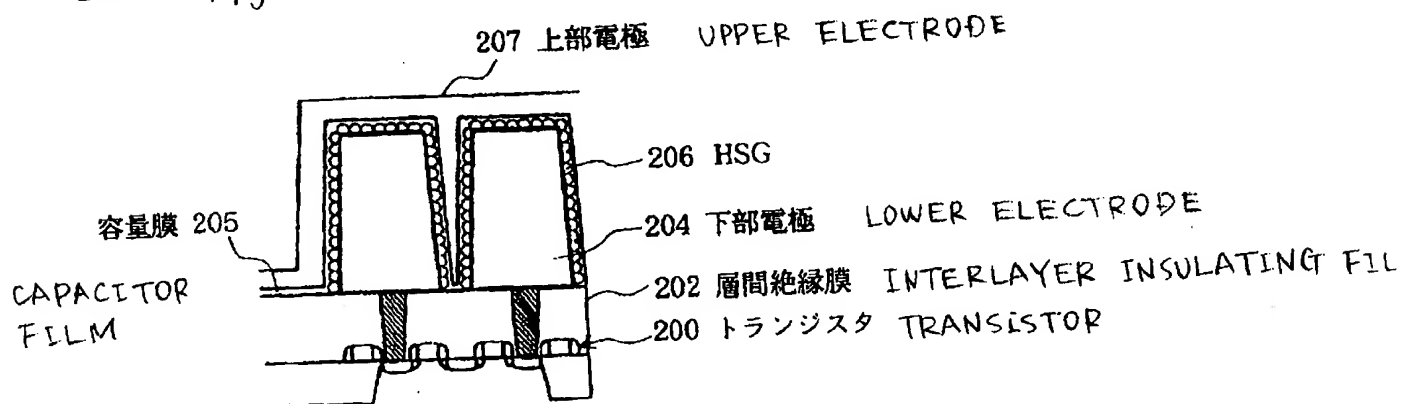 207 上部電極 UPPER ELECTRODE
206 HSG
容量膜 205
204 下部電極 LOWER ELECTRODE
CAPACITOR
FILM
202 層間絶縁膜 INTERLAYER INSULATING FIL
200 トランジスタ TRANSISTOR